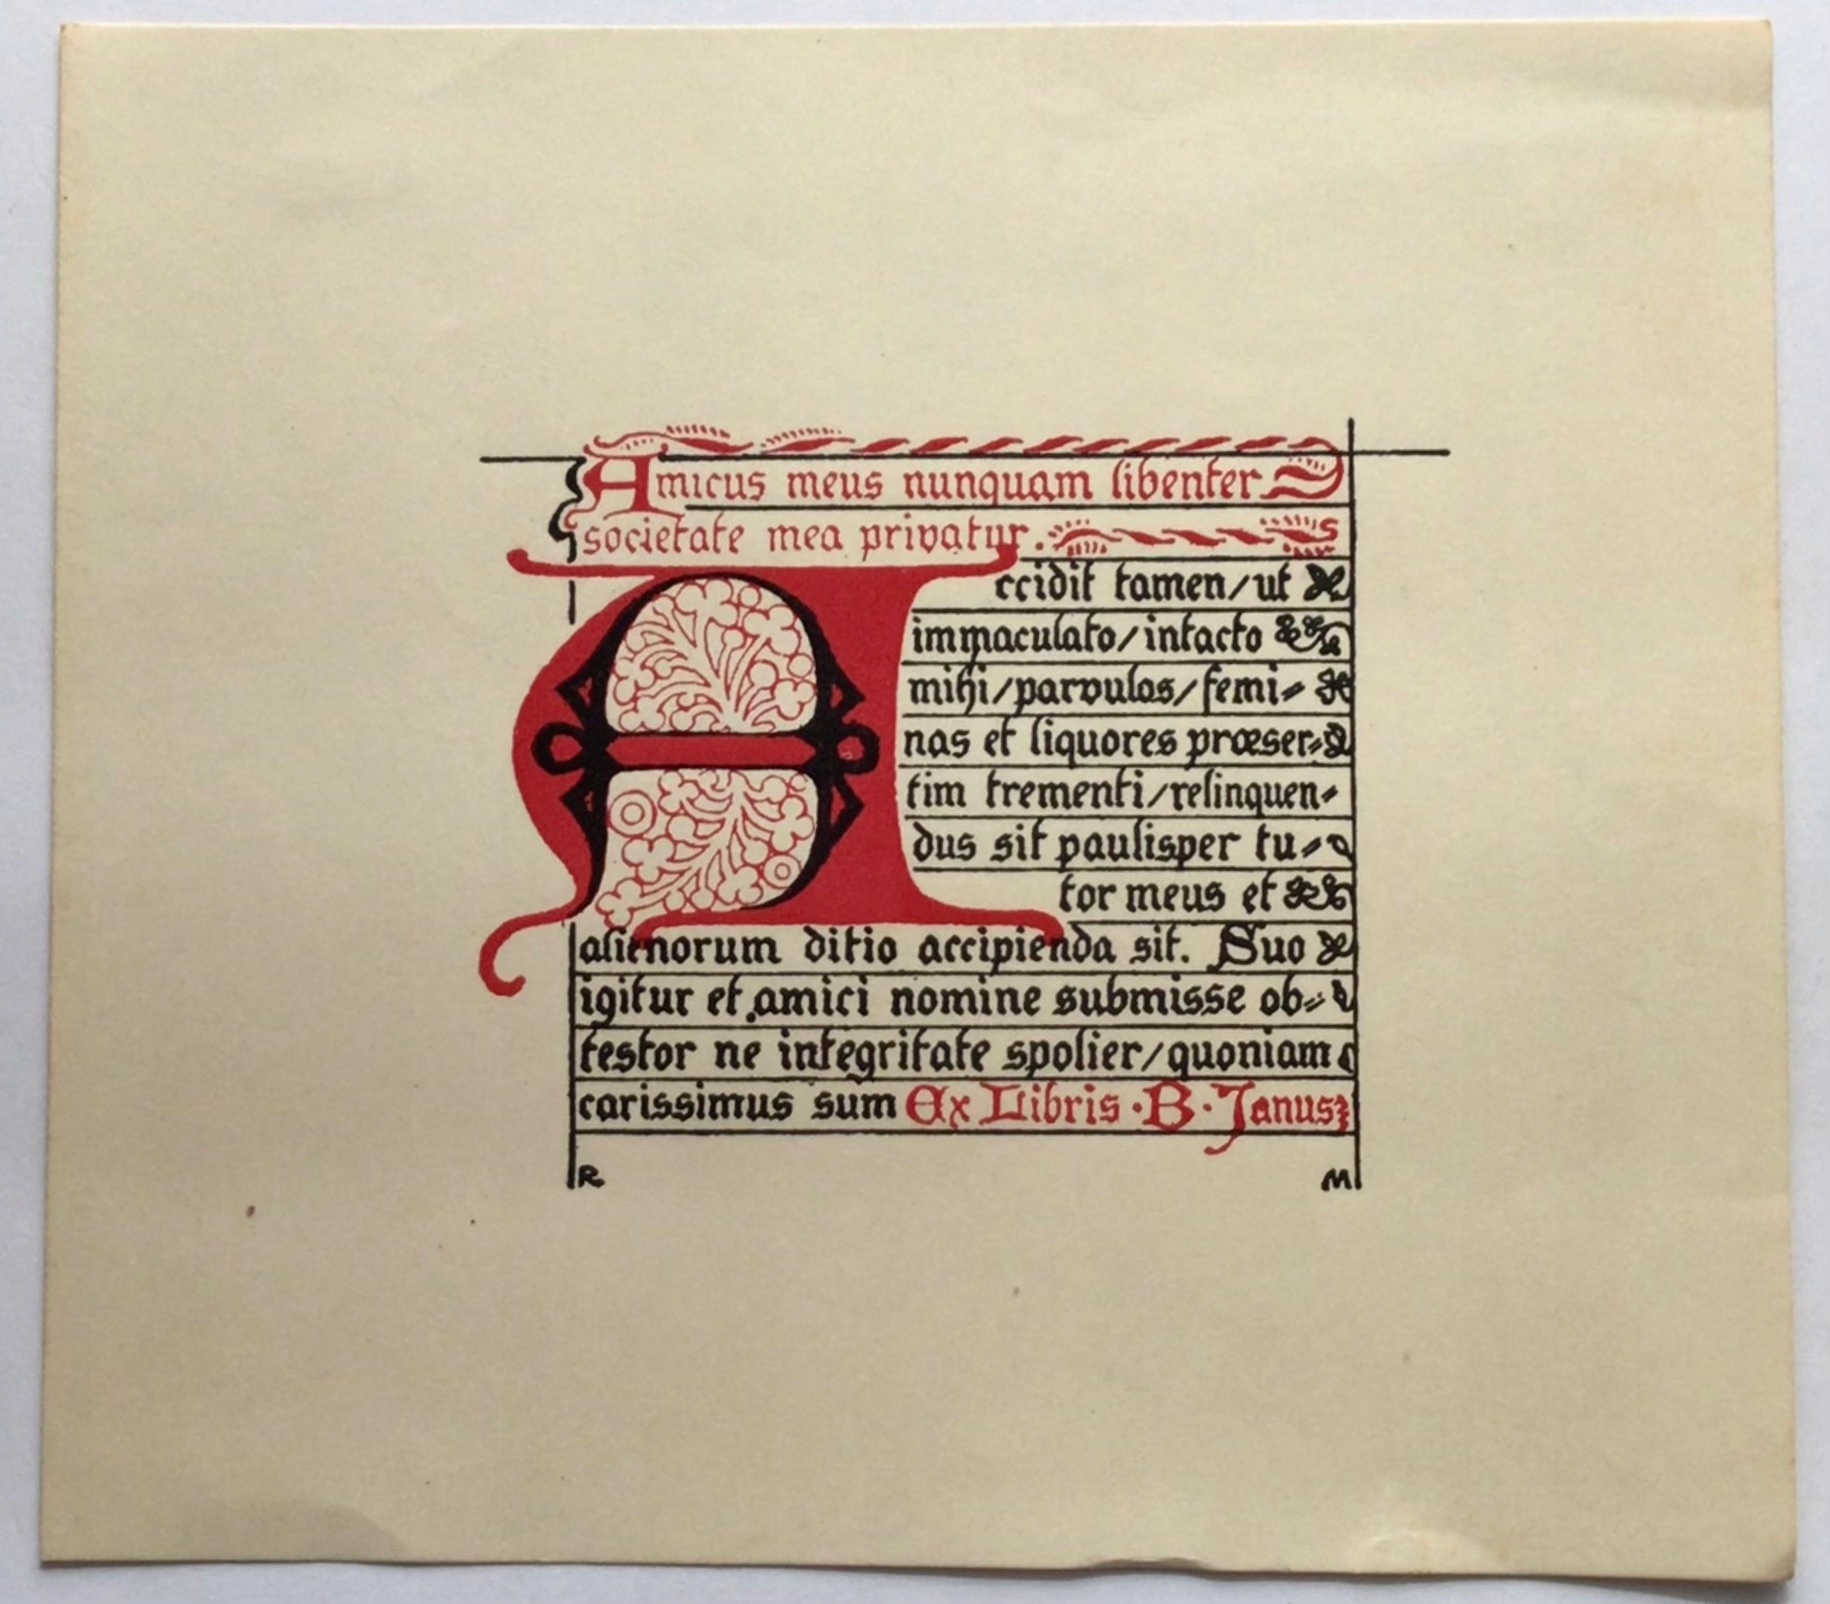 Amicus meus nunquam libenter
societate mea privatur.
Accidit tamen/ut
immaculato/intacto
mihi/parvulos/femi=
nas et liquores præser=
tim trementi/relinquen=
dus sit paulisper tu=
tor meus et
alienorum ditio accipienda sit. Suo
igitur et amici nomine submisse ob=
testor ne integritate spolier/quoniam
carissimus sum Ex Libris · B · Janus
R M